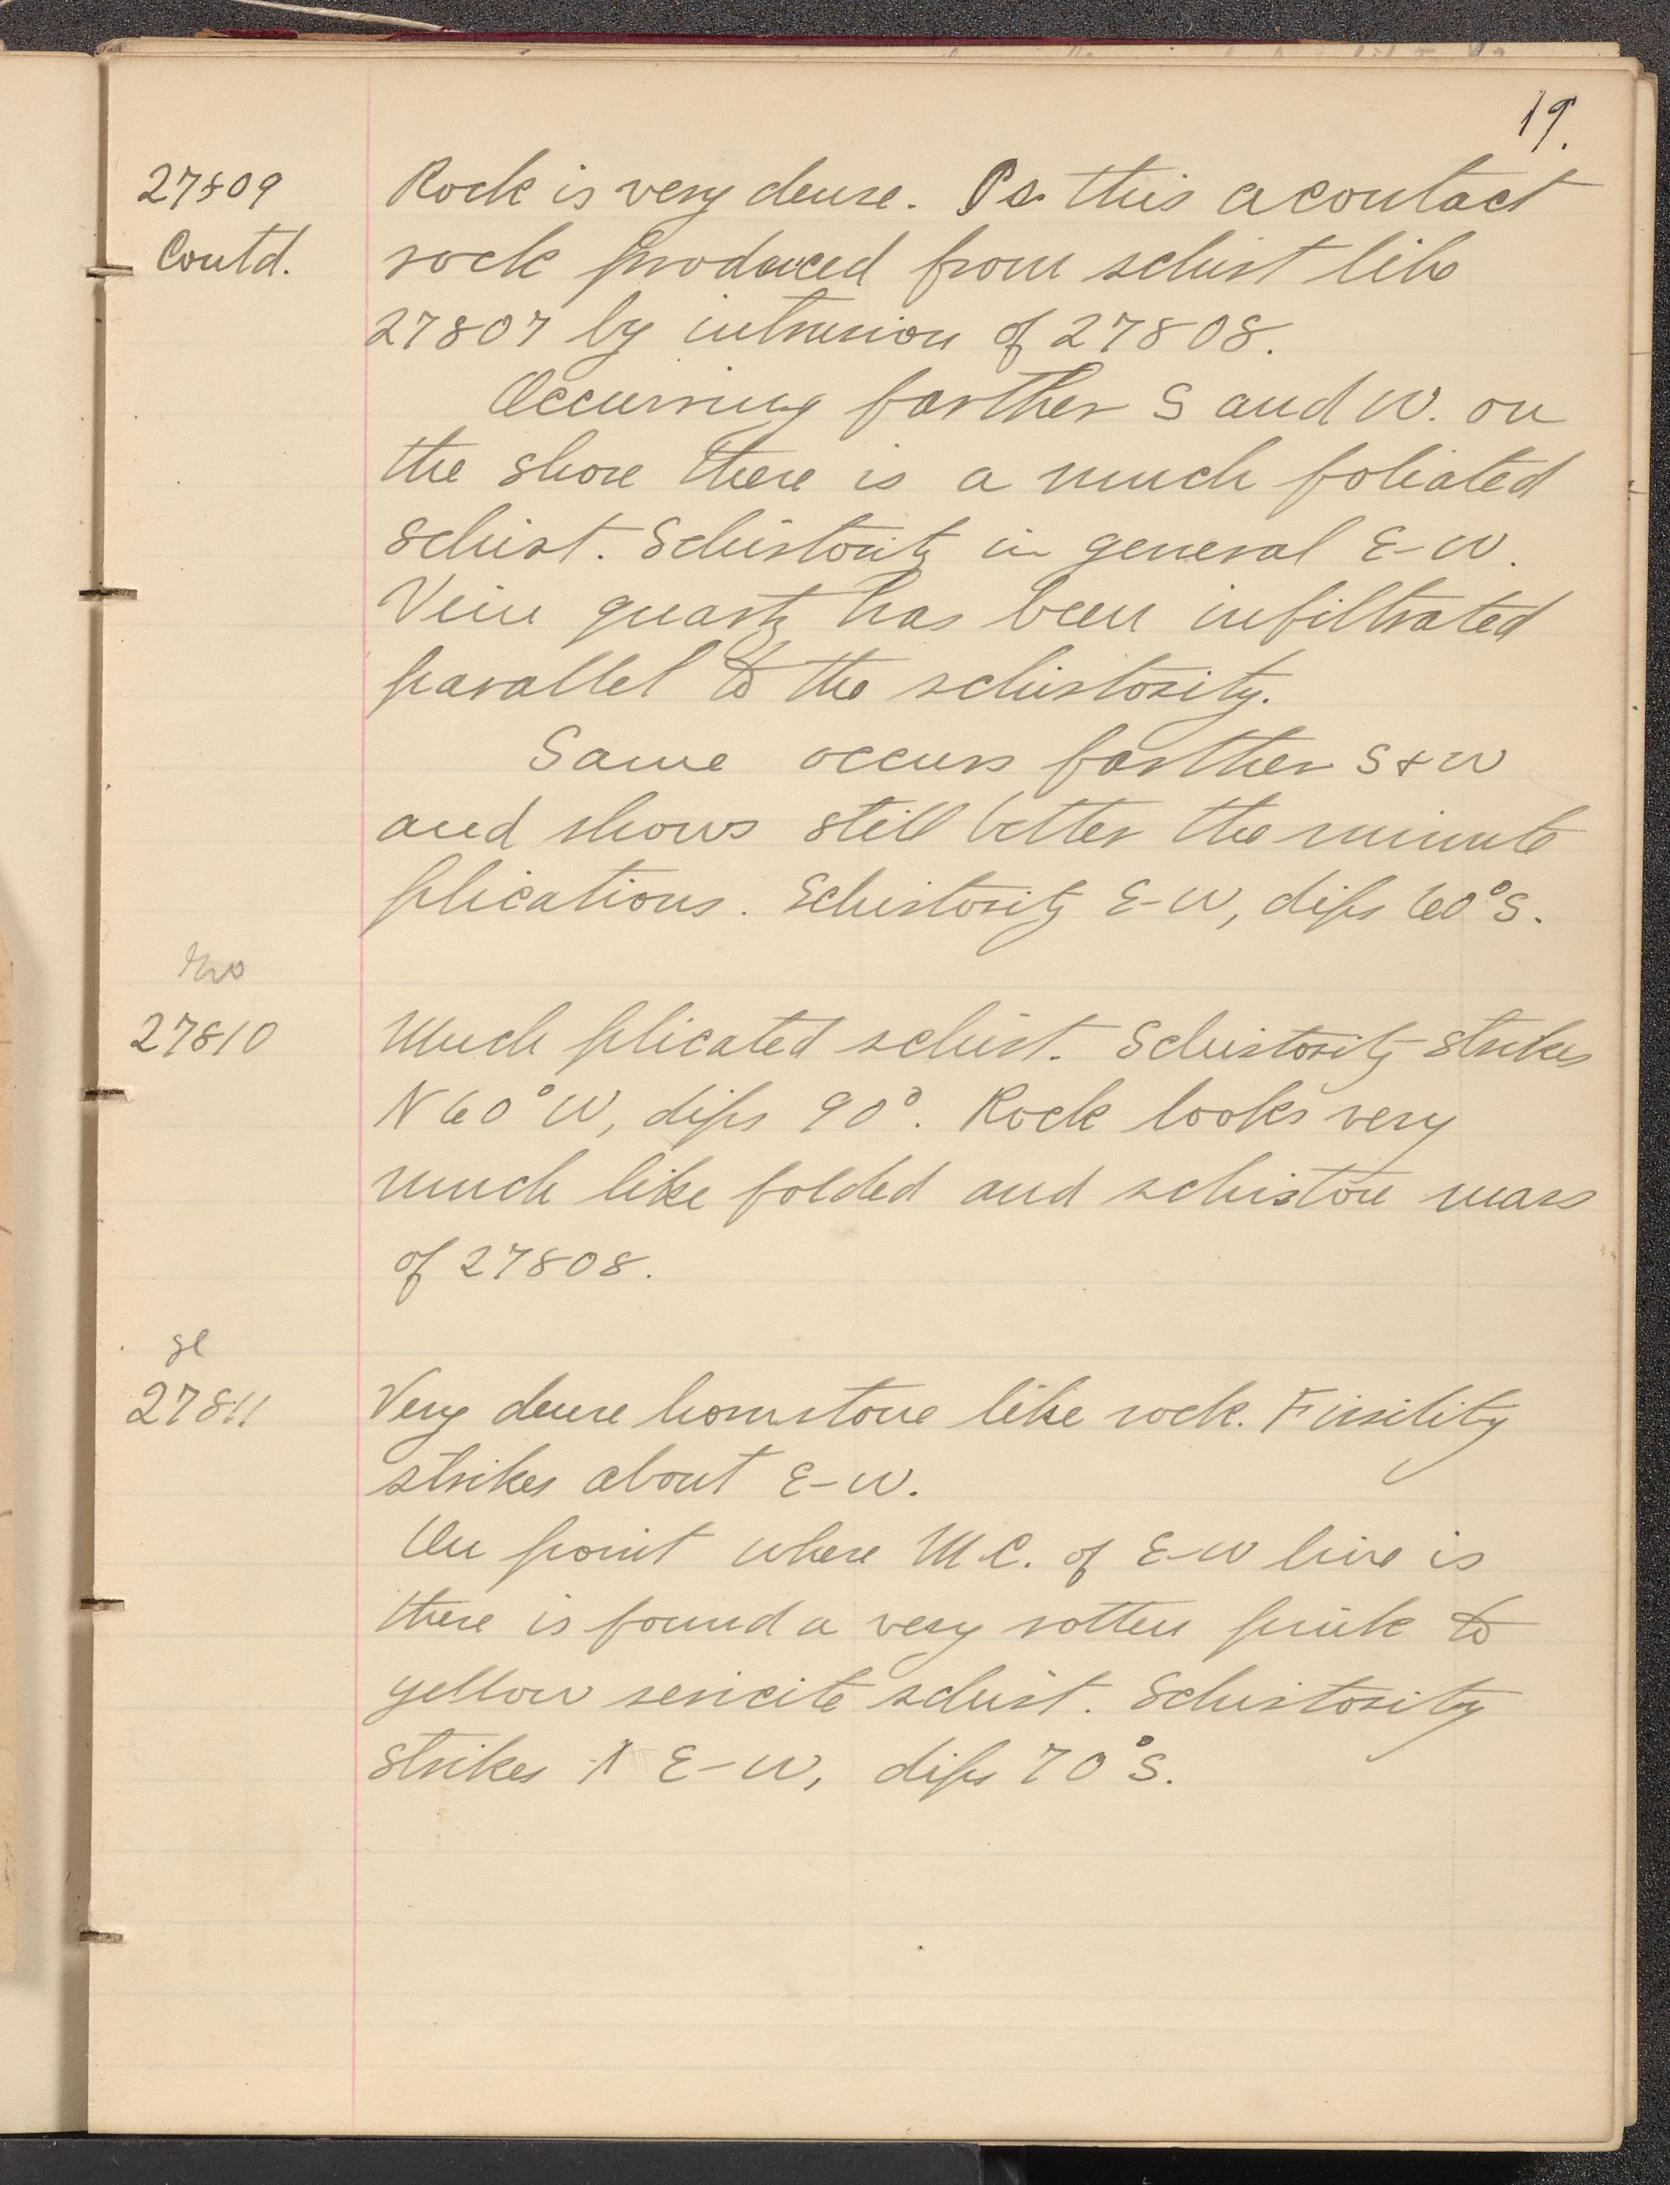 19.
27809 Rock is very dense. Is this a contact
Contd. rock produced from schist like
27807 by intrusion of 27808.
Occurring farther S and W. on
the shore there is a much foliated
schist. Schistosity in general E-W.
Vein quartz has been infiltrated
parallel to the schistosity.
Same occurs farther S & W
and shows still better the minute
plications. Schistosity E-W, dips 60° S.
27810 Much plicated schist. Schistosity strikes
N 60° W, dips 90°. Rock looks very
much like folded and schistose mass
of 27808.
gl
27811 Very dense hornstone like rock. Fissility
strikes about E-W.
On point where M C. of E-W line is
there is found a very rotten pink to
yellow sericite schist. Schistosity
strikes E-W, dips 70° S.